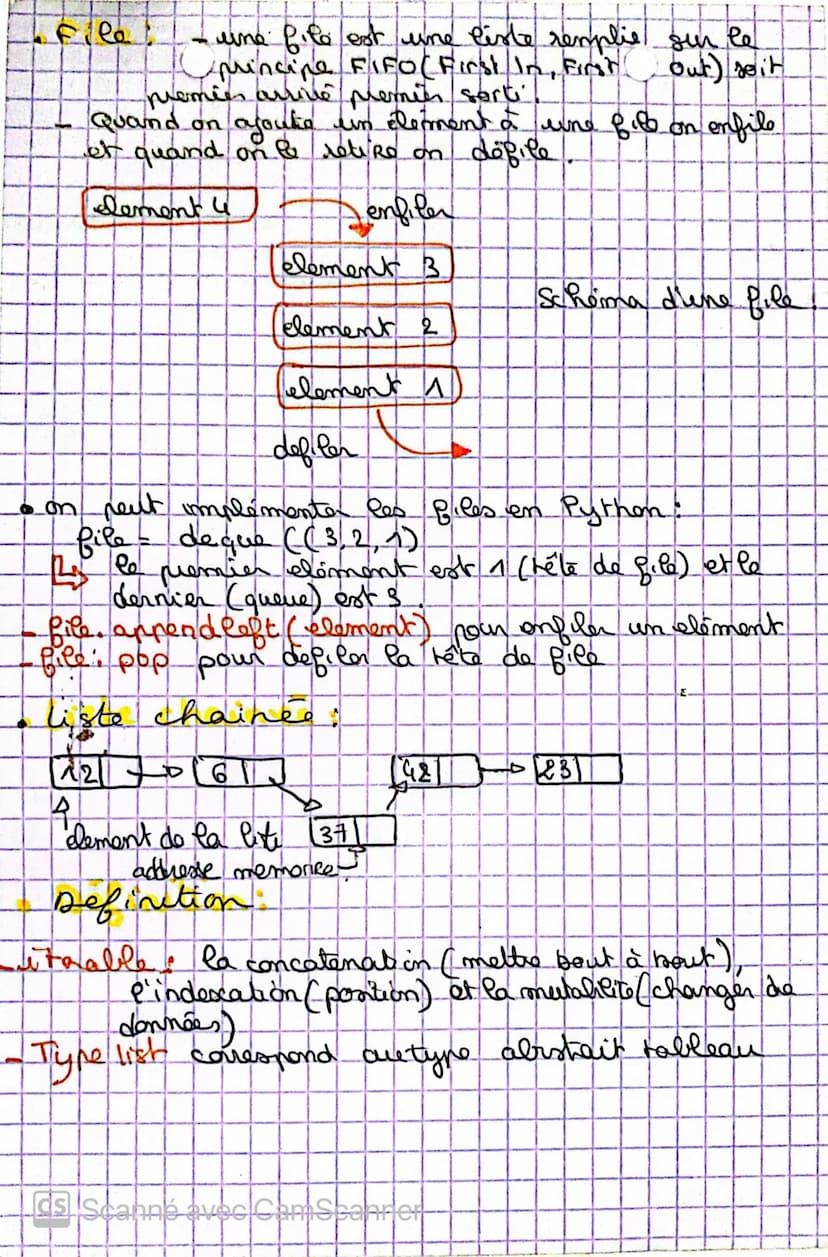 . File : - une file est une liste remplie sur le
principe FIFO (First In, First out) soit
premier arrivé premier sorti.
- Quand on ajoute un élément à une file on enfile
et quand on le retire on défile.
element 4
enfiler
element 3
Schéma d'une file.
element 2
element 1
defiler
• on peut implémenter les files en Python :
file = deque ((3, 2, 1)
le premier elément est 1 (tête de file) et le
dernier (queue) est 3.
- file. appendleft (element) pour enfiler un elément
- file. pop pour défiler la tête de file
. Liste chainée :
12 6 42 23
37
element de la liste
addresse memorice
. Définition :
- itérable : la concatenation (mettre bout à bout),
l'indexation (position) et la mutabilité (changer de
données)
- Type list correspond au type abstrait tableau
CS Scanné avec CamScanner